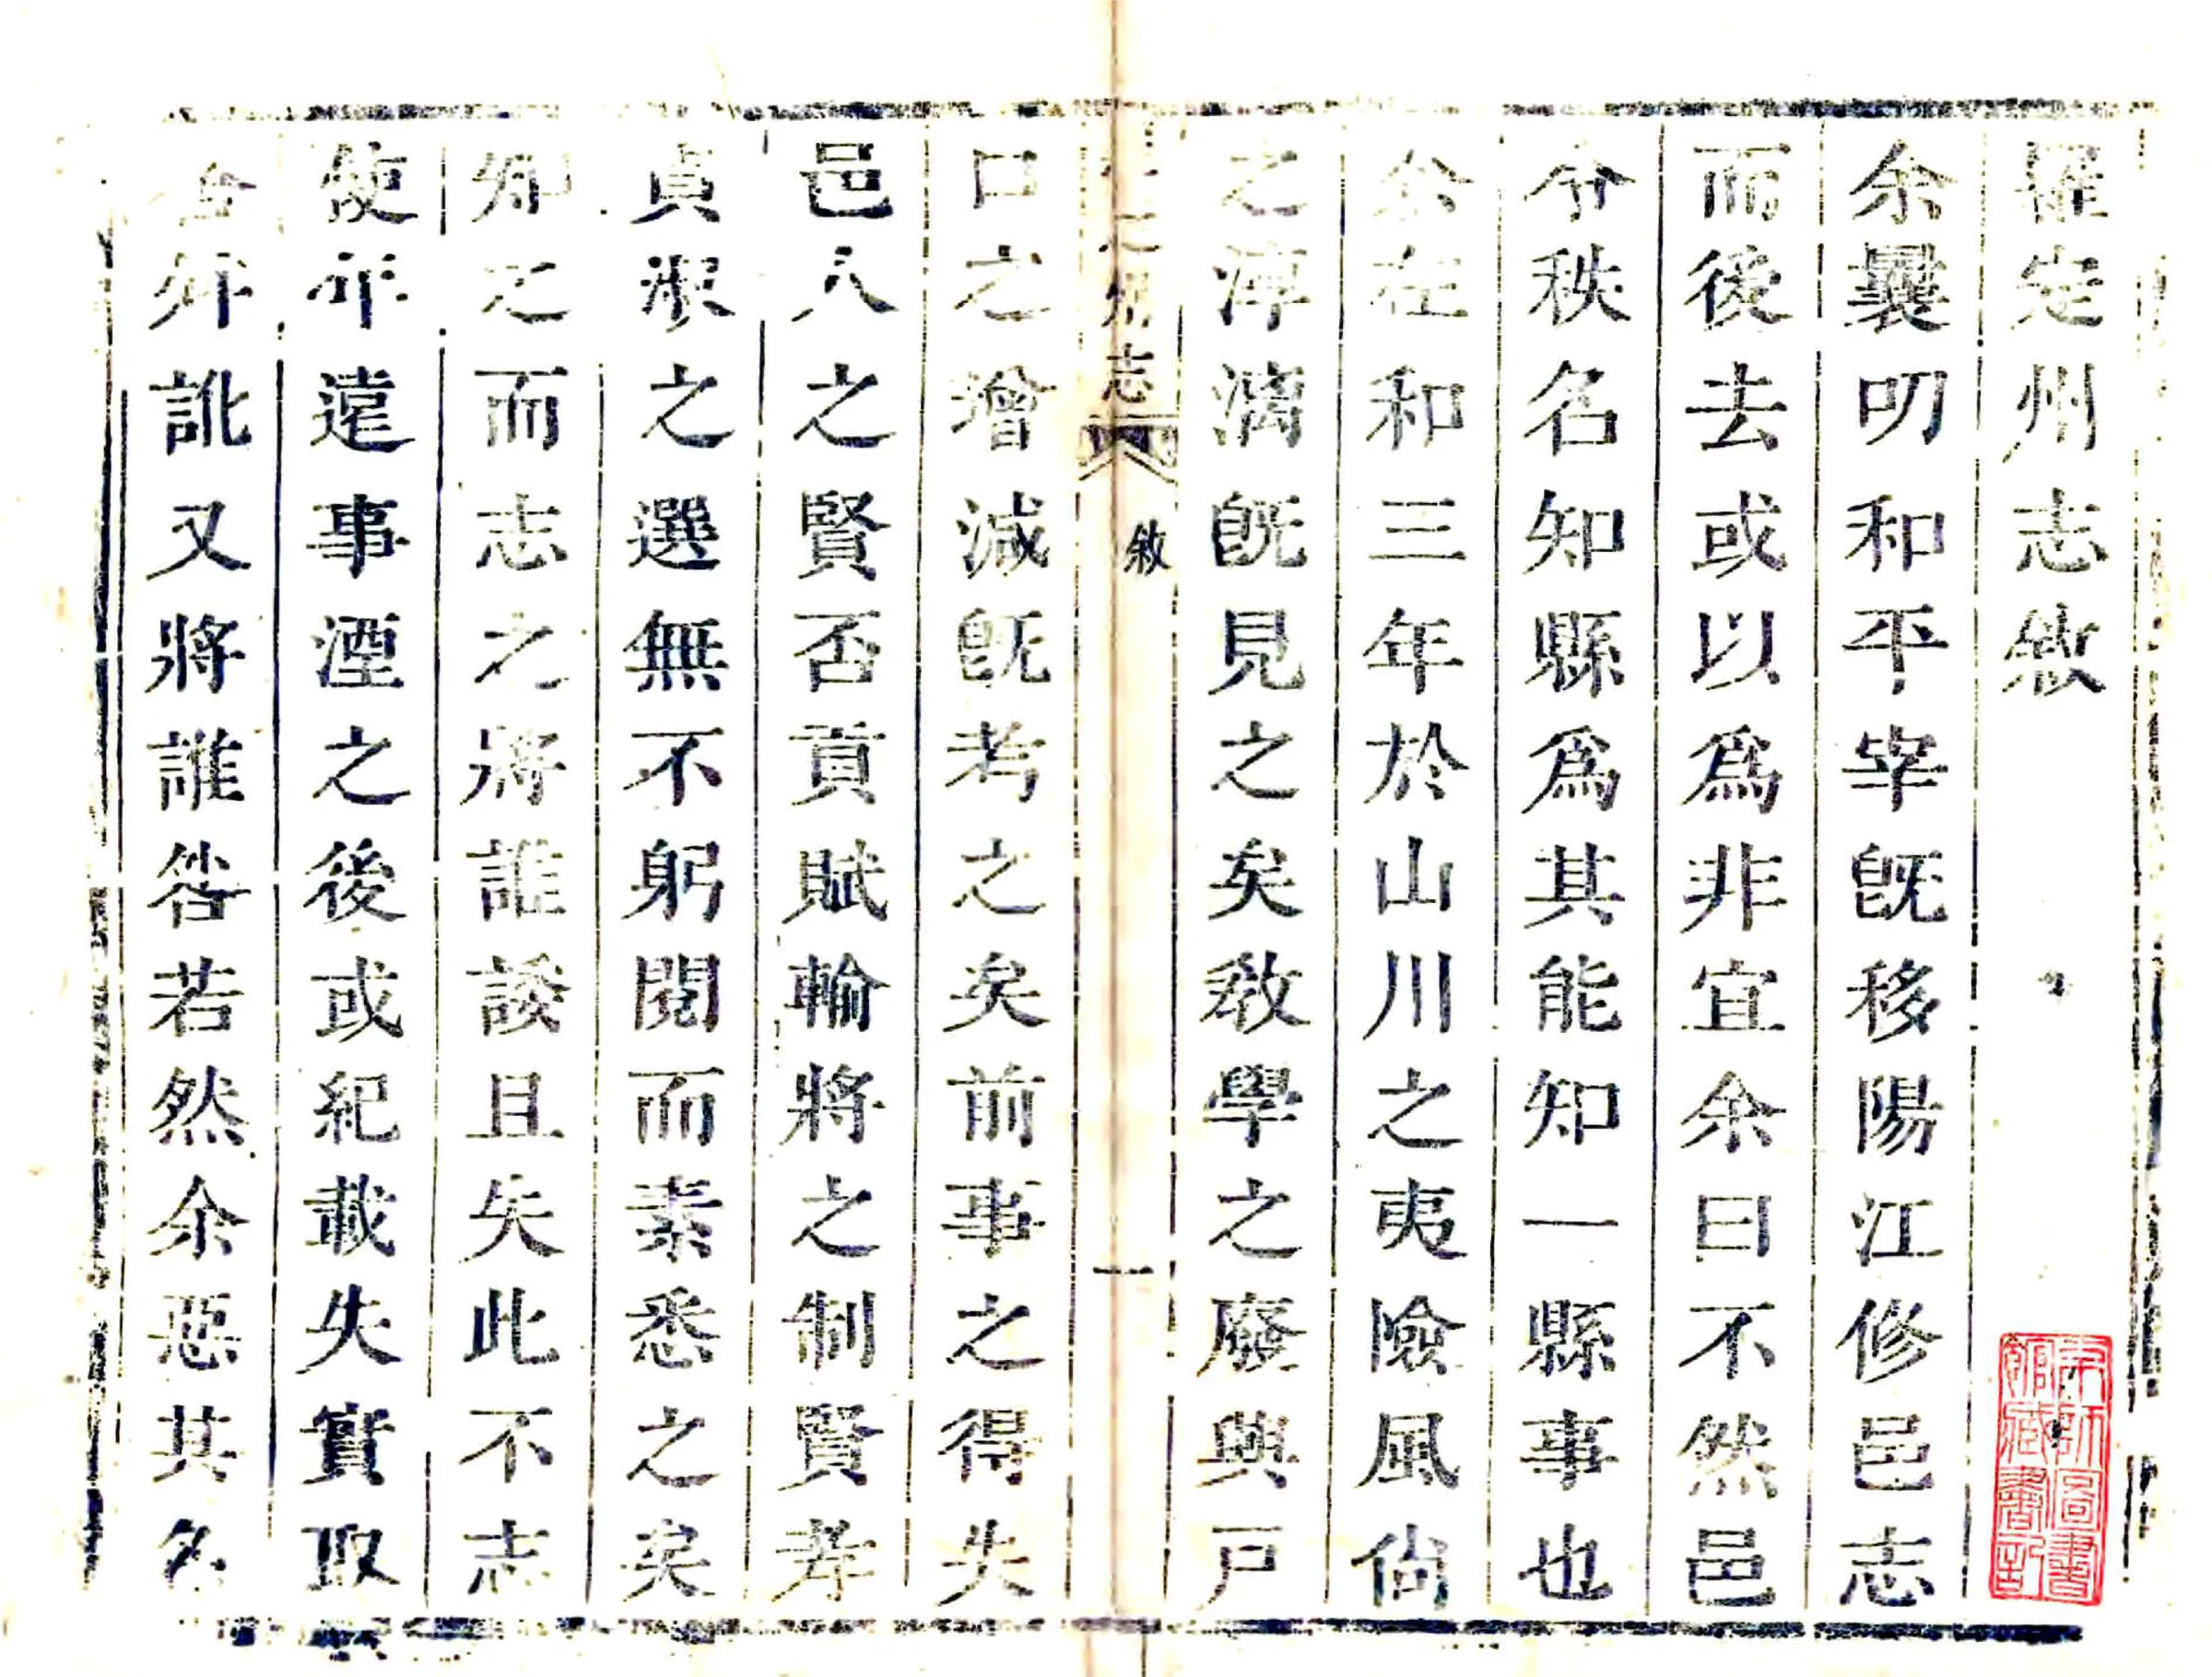 羅定州志敘
余曩叨和平宰旣移陽江修邑志
而後去或以爲非宜余曰不然邑
令秩名知縣爲其能知一縣事也
余在和三年於山川之夷險風尙
之淳漓旣見之矣敎學之廢興戸
羅定州志 敘 一
口之增減旣考之矣前事之得失
邑人之賢否貢賦輸將之制賢孝
貞淑之選無不躬閱而素悉之矣
知之而志之將誰諉且失此不志
使年遠事湮之後或紀載失實取
舛訛又將誰咎若然余惡其名
京師圖書館藏書記